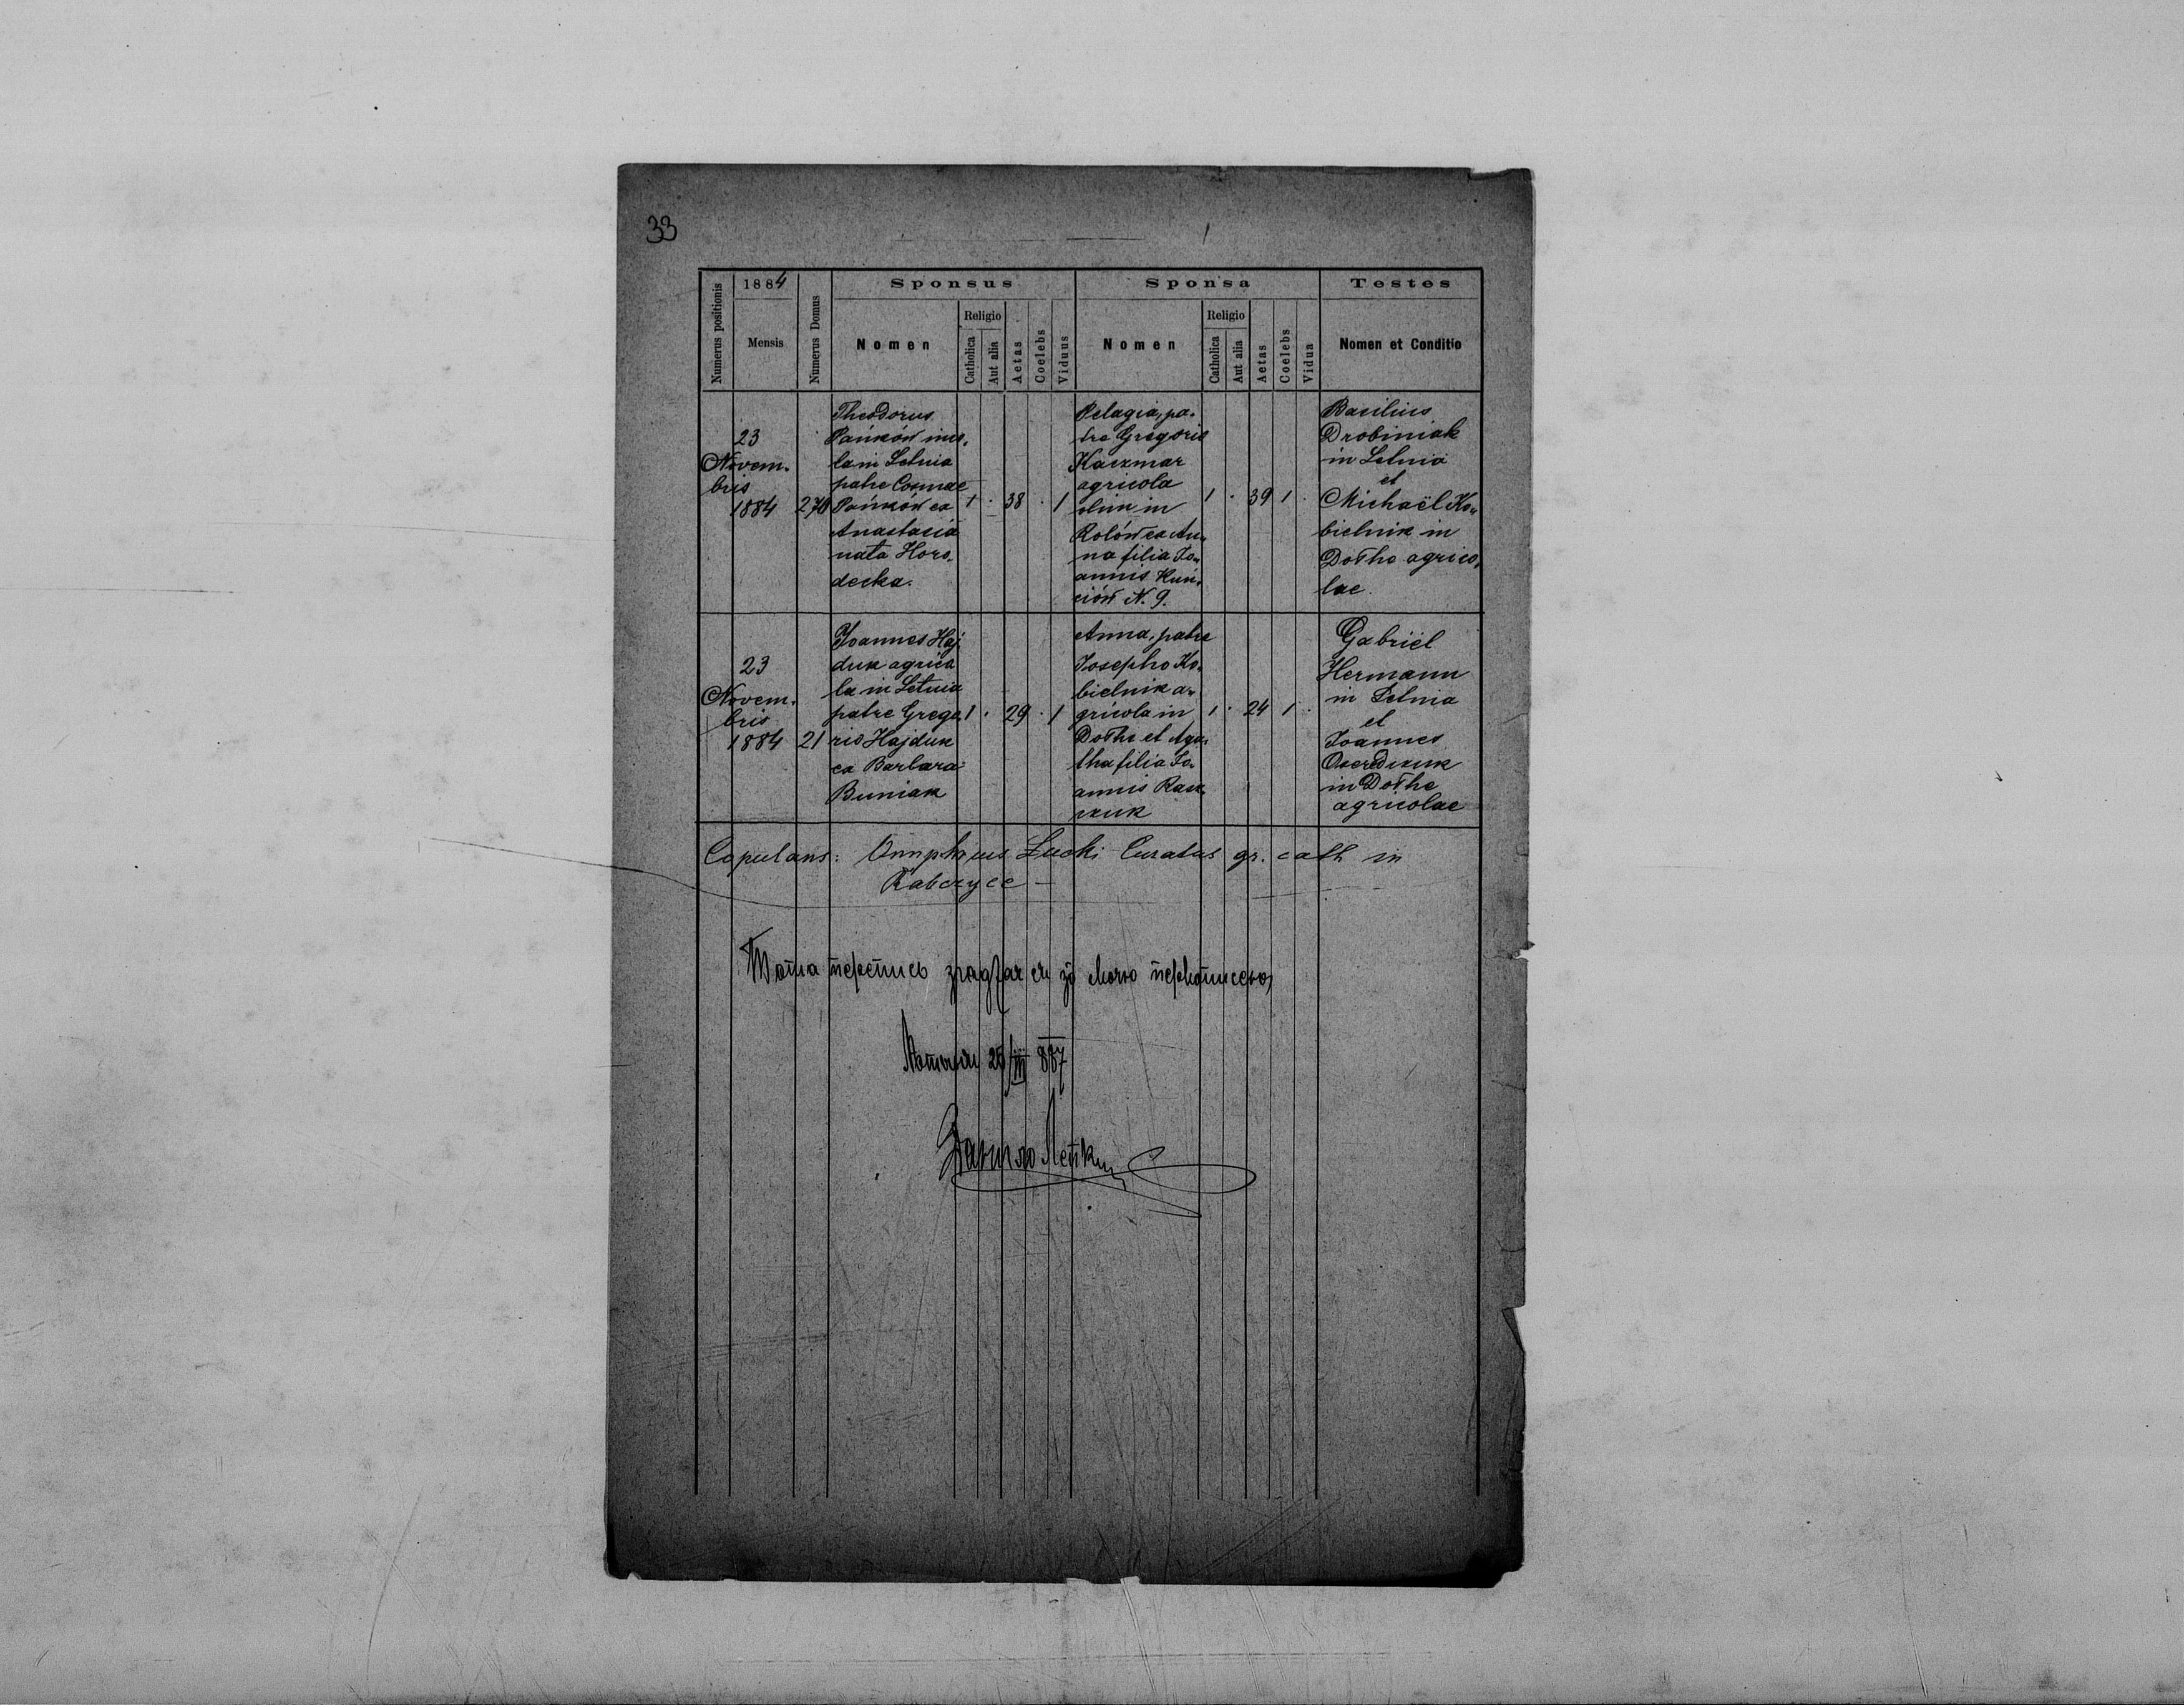 33
1884
Sponsus
Sponsa
Testes
Numerus positionis
Mensis
Numerus Domus
Nomen
Religio
Catholica
Aut alia
Aetas
Coelebs
Viduus
Nomen
Religio
Catholica
Aut alia
Aetas
Coelebs
Vidua
Nomen et Conditio
23
Novem.
bris
1884
270
Theodorus
Pańków
la in Letnia
patre Cosmae
Pańków ex
Anastasia
nata Horo.
decka.
1 . 38 . 1
Pelagia, pa.
tre Gregorio
Kaczmar
agricola
olim in
Rolów ex An.
na filia Jo.
annis Kun.
ciów N. 9.
1 . 39 1 .
Basilius
Drobiniak
in Letnia
et
Michaël Ko.
bielnik in
Dołhe agrico.
lae.
23
Novem.
bris
1884
21
Joannes Haj
duk agrico
la in Letnia
patre Grego
rio Hajduk
ex Barbara
Buniak
1 . 29 . 1
Anna, patre
Josepho Ko.
bielnik a.
gricola in
Dołhe et Aga.
tha filia Jo.
annis
1 . 24 1 .
Gabriël
Hermann
in Letnia
et
Joannes
in Dołhe
agricolae
Copulans: Łucki Curatus gr. cath in
Rabczyce –
перепись
25/III 887